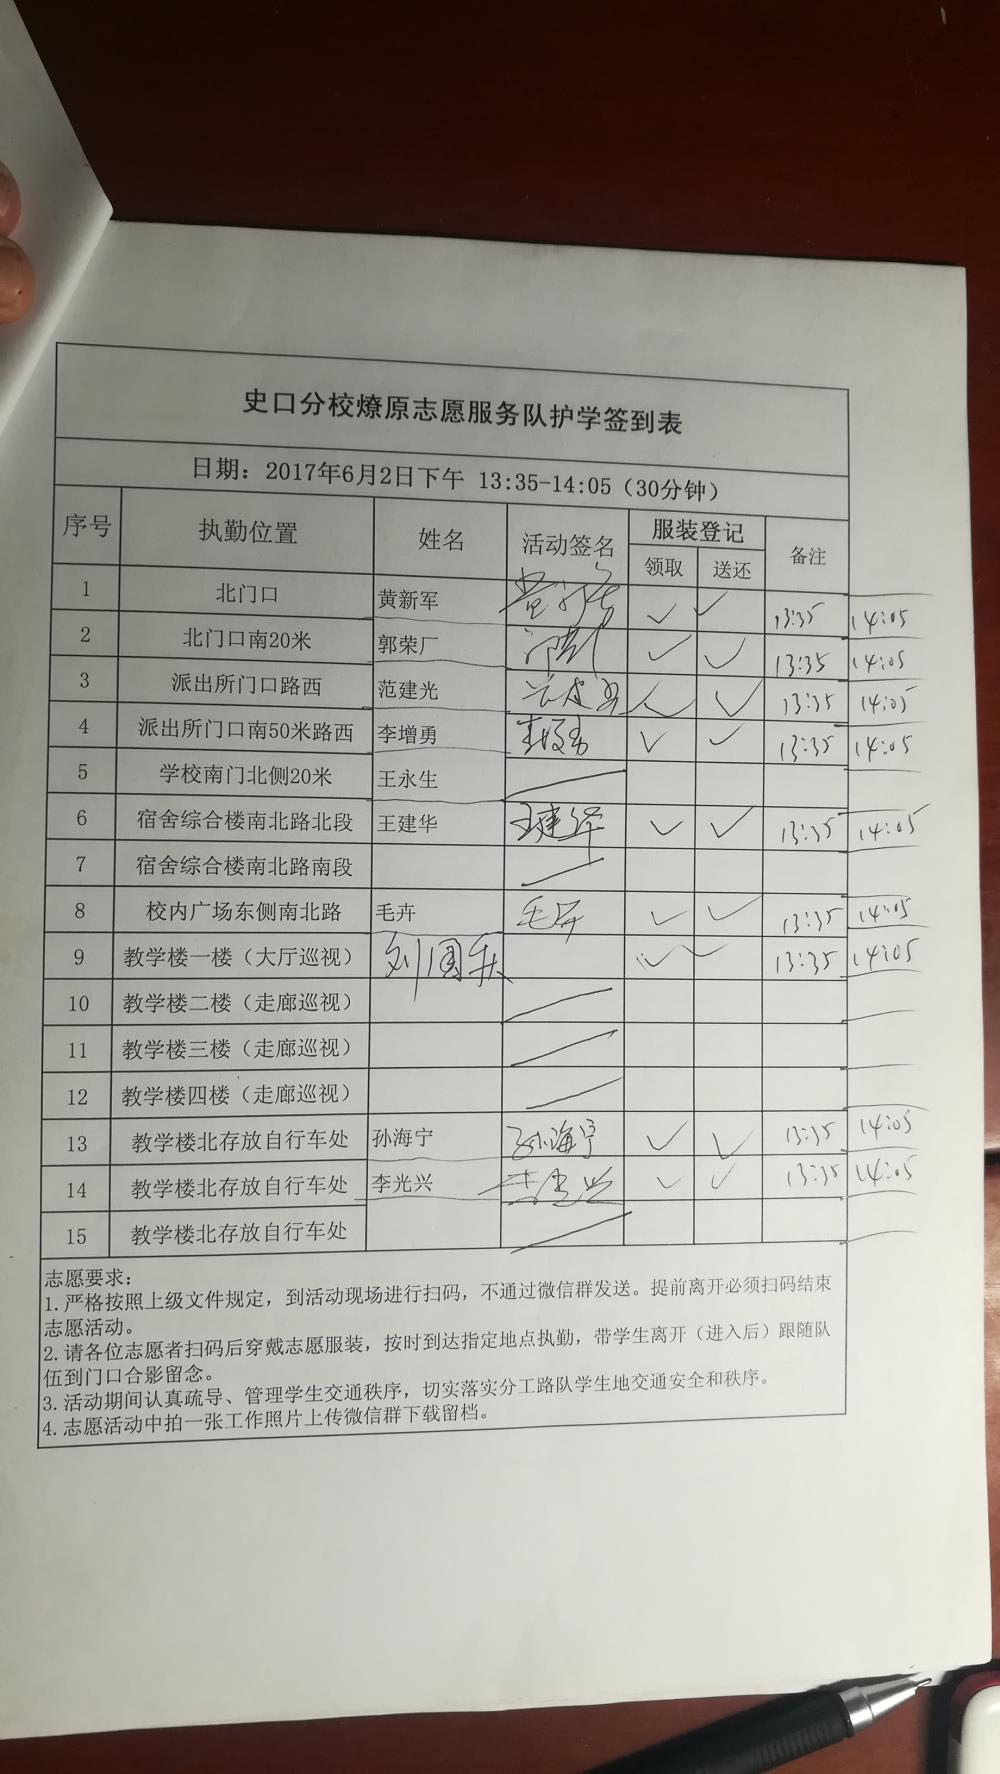 史口分校燎原志愿服务队护学签到表
日期：2017年6月2日下午 13:35-14:05（30分钟）
序号 执勤位置 姓名 活动签名 服装登记 备注
领取 送还
1 北门口 黄新军 ✓ ✓ 13:35 14:05
2 北门口南20米 郭荣厂 ✓ ✓ 13:35 14:05
3 派出所门口路西 范建光 ✓ ✓ 13:35 14:05
4 派出所门口南50米路西 李增勇 李增勇 ✓ ✓ 13:35 14:05
5 学校南门北侧20米 王永生
6 宿舍综合楼南北路北段 王建华 王建华 ✓ ✓ 13:35 14:05
7 宿舍综合楼南北路南段
8 校内广场东侧南北路 毛卉 毛卉 ✓ ✓ 13:35 14:05
9 教学楼一楼（大厅巡视） 刘国庆 ✓ ✓ 13:35 14:05
10 教学楼二楼（走廊巡视）
11 教学楼三楼（走廊巡视）
12 教学楼四楼（走廊巡视）
13 教学楼北存放自行车处 孙海宁 孙海宁 ✓ ✓ 13:35 14:05
14 教学楼北存放自行车处 李光兴 李光兴 ✓ ✓ 13:35 14:05
15 教学楼北存放自行车处
志愿要求：
1.严格按照上级文件规定，到活动现场进行扫码，不通过微信群发送。提前离开必须扫码结束
志愿活动。
2.请各位志愿者扫码后穿戴志愿服装，按时到达指定地点执勤，带学生离开（进入后）跟随队
伍到门口合影留念。
3.活动期间认真疏导、管理学生交通秩序，切实落实分工路队学生地交通安全和秩序。
4.志愿活动中拍一张工作照片上传微信群下载留档。